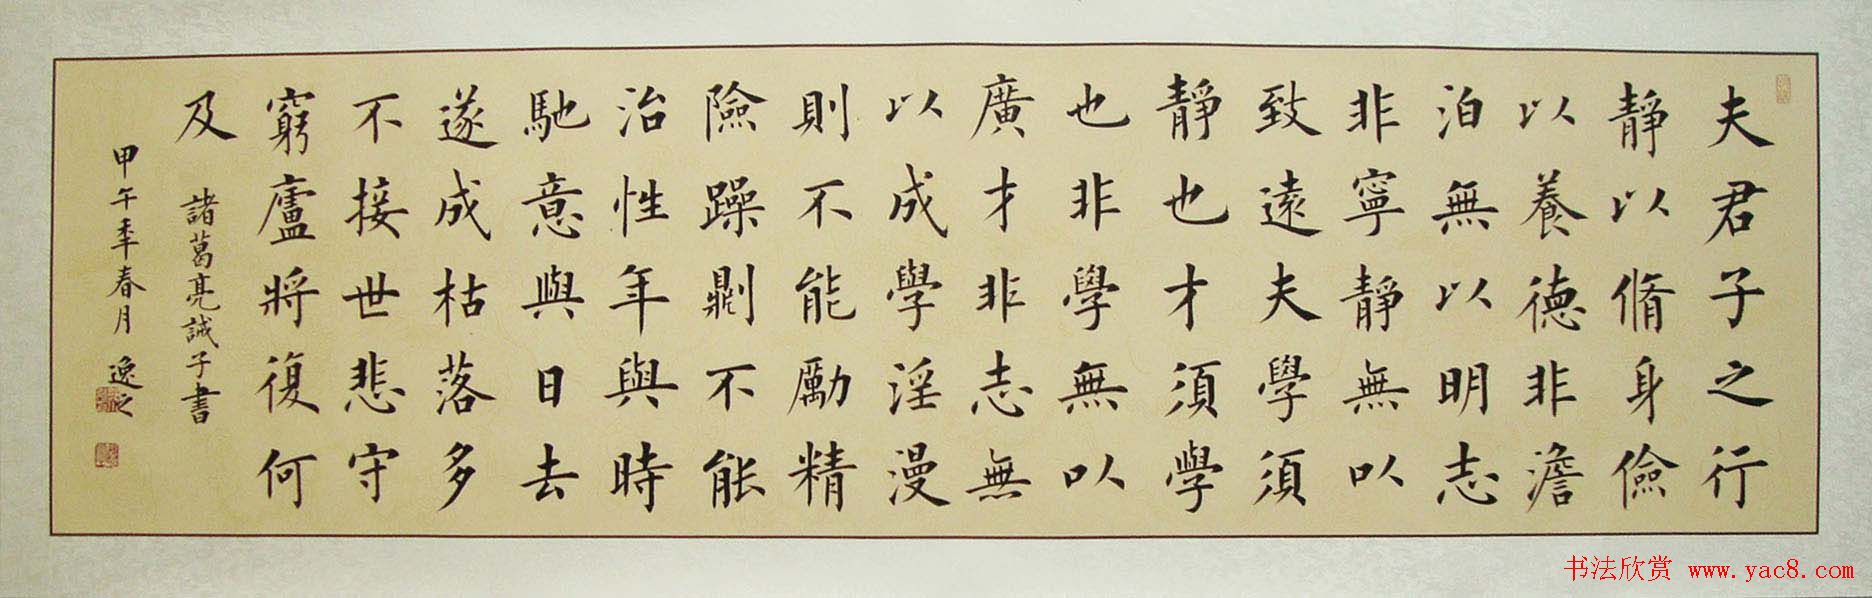 夫君子之行
静以脩身儉
以養德非澹
泊無以明志
非寧静無以
致遠夫學須
静也才須學
也非學無以
廣才非志無
以成學淫漫
則不能勵精
險躁則不能
治性年與時
馳意與日去
遂成枯落多
不接世悲守
窮廬將復何
及
諸葛亮誡子書
甲午年春月
逸之
书法欣赏 www.yac8.com